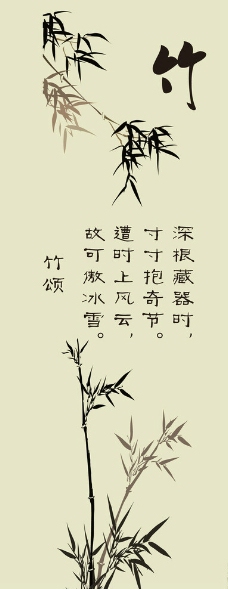 竹
深根藏器时，
寸寸抱奇节。
遭时上风云，
故可傲冰雪。
竹颂